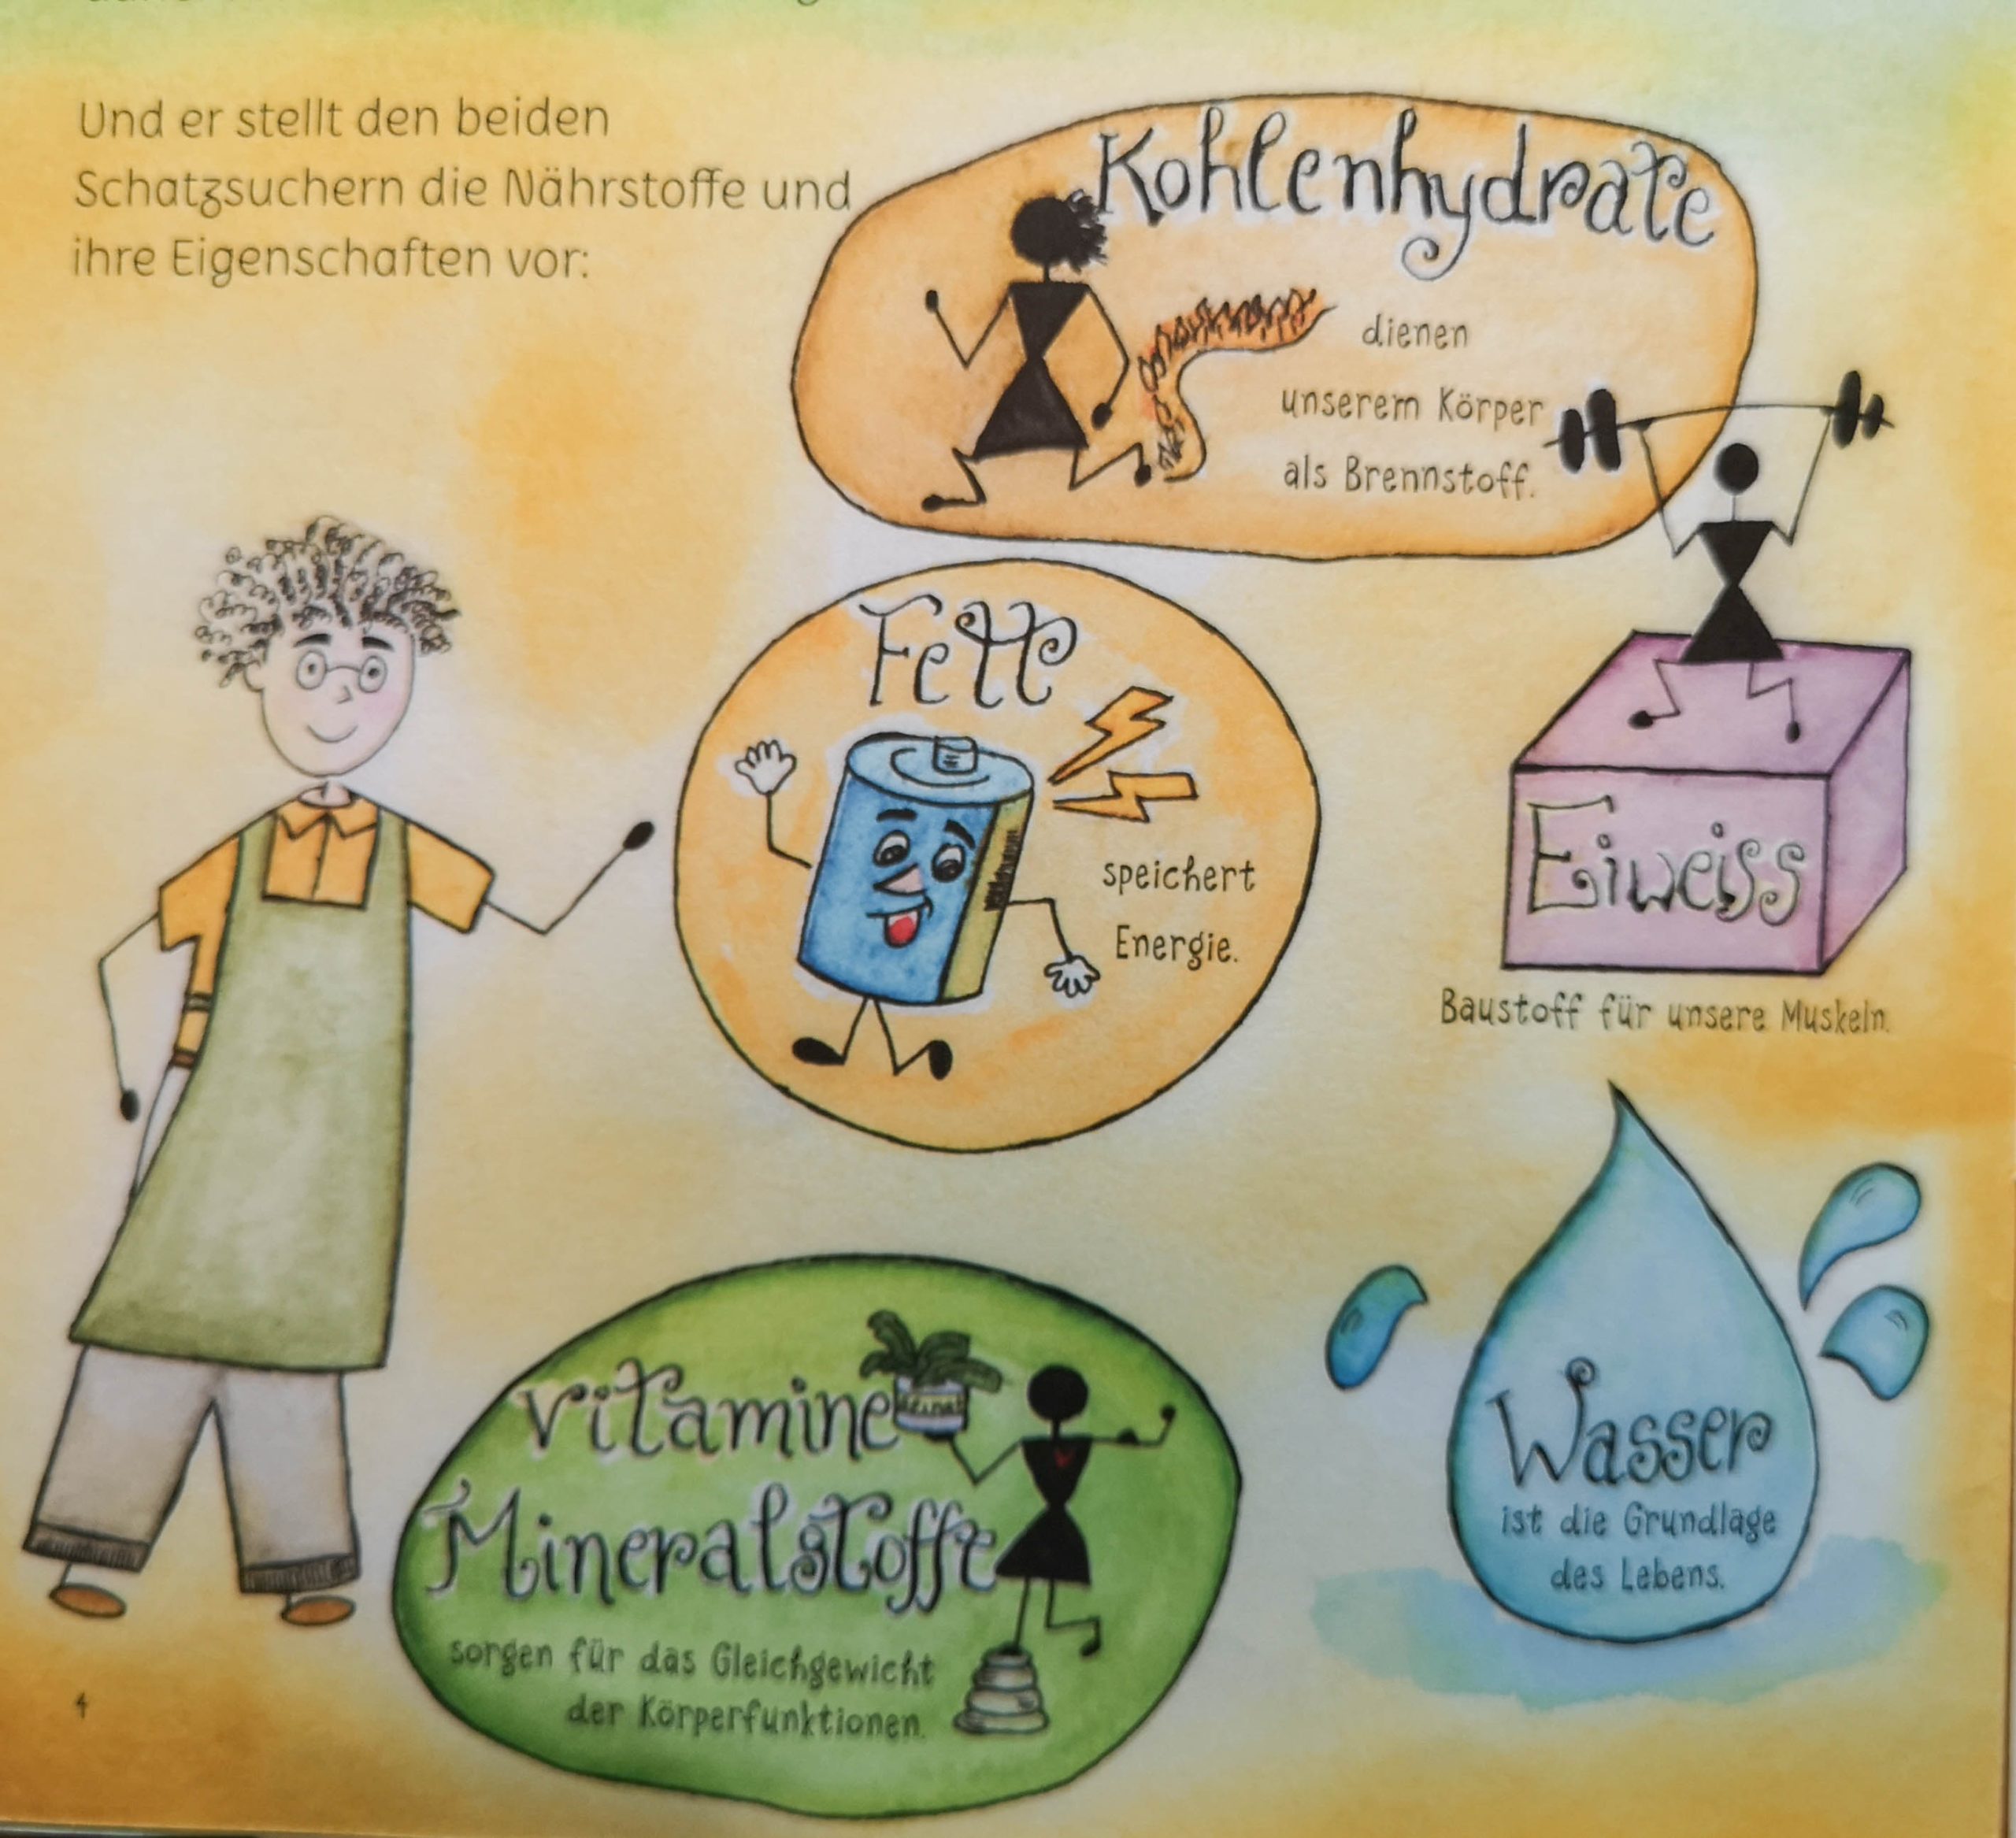 Und er stellt den beiden
Schatzsuchern die Nährstoffe und
ihre Eigenschaften vor:
Kohlenhydrate
dienen
unserem Körper
als Brennstoff.
Fett
speichert
Energie.
Eiweiss
Baustoff für unsere Muskeln.
Vitamine
Mineralstoffe
sorgen für das Gleichgewicht
der Körperfunktionen.
Wasser
ist die Grundlage
des Lebens.
4